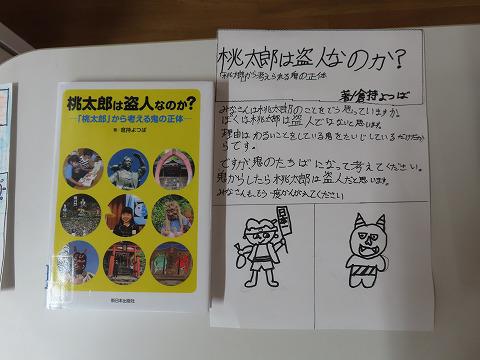 桃太郎は盗人なのか?
―「桃太郎」から考える鬼の正体―
著 倉持よつば
新日本出版社
桃太郎は盗人なのか?
「桃太郎」から考えられる鬼の正体
著/倉持よつば
みなさんは桃太郎のことをどう思っていますか。
ぼくは桃太郎は盗人ではないと思います。
理由はわるいことをしている鬼をたいじしているだけだか
らです。
ですが鬼のたちばになって考えてください。
鬼からしたら桃太郎は盗人だと思います。
みなさんも、もう一度かんがえてください
日本一